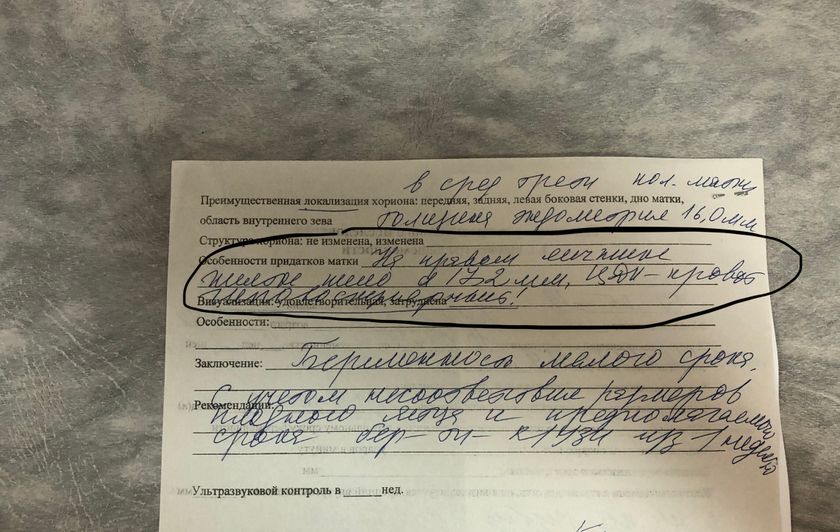 в сред трети пол. матки
Преимущественная локализация хориона: передняя, задняя, левая боковая стенки, дно матки,
область внутреннего зева толщина эндометрия 16,0 мм
Структура хориона: не изменена, изменена
Особенности придатков матки На правом яичнике
желтое тело d 172 мм, ЦДК-кровот
Визуализация: удовлетворительная, затруднена
Особенности:
Заключение: Беременность малого срока.
С учетом несоответствия размеров
Рекомендации:
плодного яйца и предполагаемого
срока бер-ти - к УЗИ ч/з 1 неделю
Ультразвуковой контроль в нед.